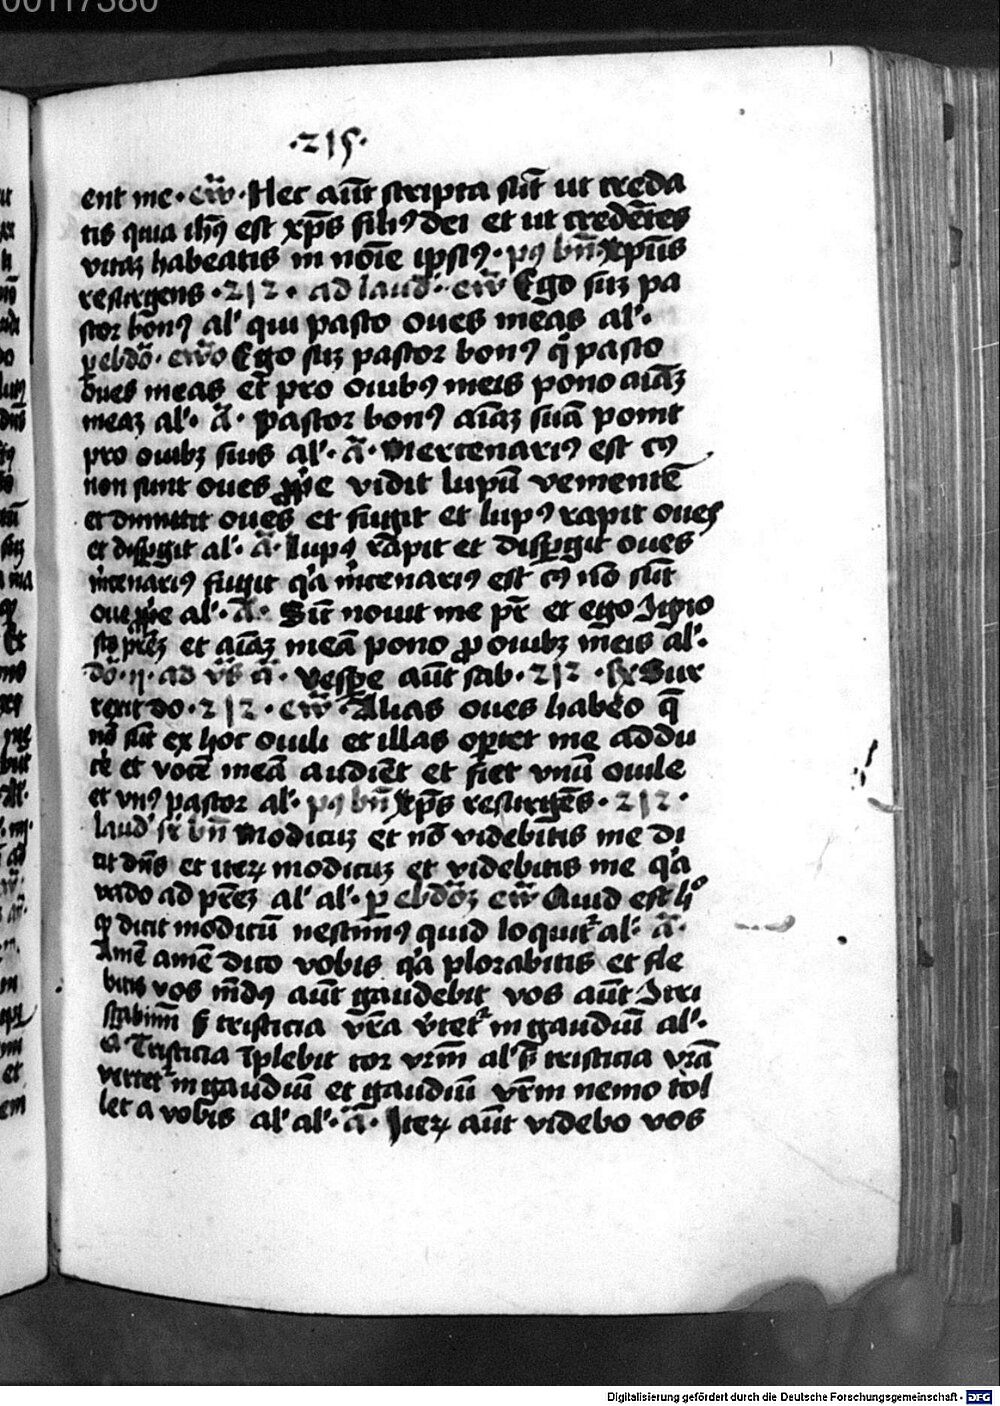 00117380
·215·
ent me · ew̄ · Hec aūt scripta sūt ut creda
tis quia ihꝰ est xp̄s filiꝰ dei et ut credētes
vitaꝫ habeatis in nōie ipsiꝰ · pꝰ bn̄ xp̄us
resurgens · 212 · ad laud' · ew̄ Ego suꝫ pa
stor bonꝰ al' qui pasco oues meas al'·
p ebdō · ew̄o Ego suꝫ pastor bonꝰ q̇ pasco
oues meas et pro ouibꝰ meis pono aīaꝫ
meaꝫ al'· ā · Pastor bonꝰ aīaꝫ suā ponit
pro ouibꝫ suis al'· ā · Mercenariꝰ est cꝰ
non sunt oues ꝓpe vidit lupū veniente
et dimittit oues et fugit et lupꝰ rapit oues
et disꝑgit al'· ā · lupꝰ rapit et disꝑgit oues
m̄cenariꝰ fugit q'a m̄cenariꝰ est cꝰ nō sūt
oue ꝓpe al'· ā · Sic̄ nouit me pr̄ et ego Igno
sco pr̄eꝫ et aīaꝫ meā pono ꝓ ouibꝫ meis al'·
dō · ij · ad vs̄ ā · Vespe aūt sab · 212 · R Sur
rexit do · 212 · ew̄ · Alias oues habeo q̄
nō sūt ex hoc ouili et illas oportet me addu
ce et vocē meā audiēt et fiet vnū ouile
et vnꝰ pastor al'· pꝰ bn̄ xp̄s resurgēs · 212 ·
laud' R bn̄ Modicuꝫ et nō videbitis me di
cit dn̄s et iteꝝ modicuꝫ et videbitis me q'a
vado ad pr̄eꝫ al' al'· p ebdōꝫ ew̄ Quid est h°
qꝫ dicit modicū nescimꝰ quid loquit̄ al'· ā ·
Amē amē dico vobis q'a plorabitis et fle
bitis vos mūdꝰ aūt gaudebit vos aūt Itri
stabimī s̄ tristicia vr̄a v̄tet̄ in gaudiū al'·
ā · Tristicia īplebit cor vr̄m al' s̄ tristicia vr̄ā
vertet̄ in gaudiū et gaudiū vr̄m nemo tol
let a vobis al' al'· ā · Iteꝝ aūt videbo vos
Digitalisierung gefördert durch die Deutsche Forschungsgemeinschaft - DFG